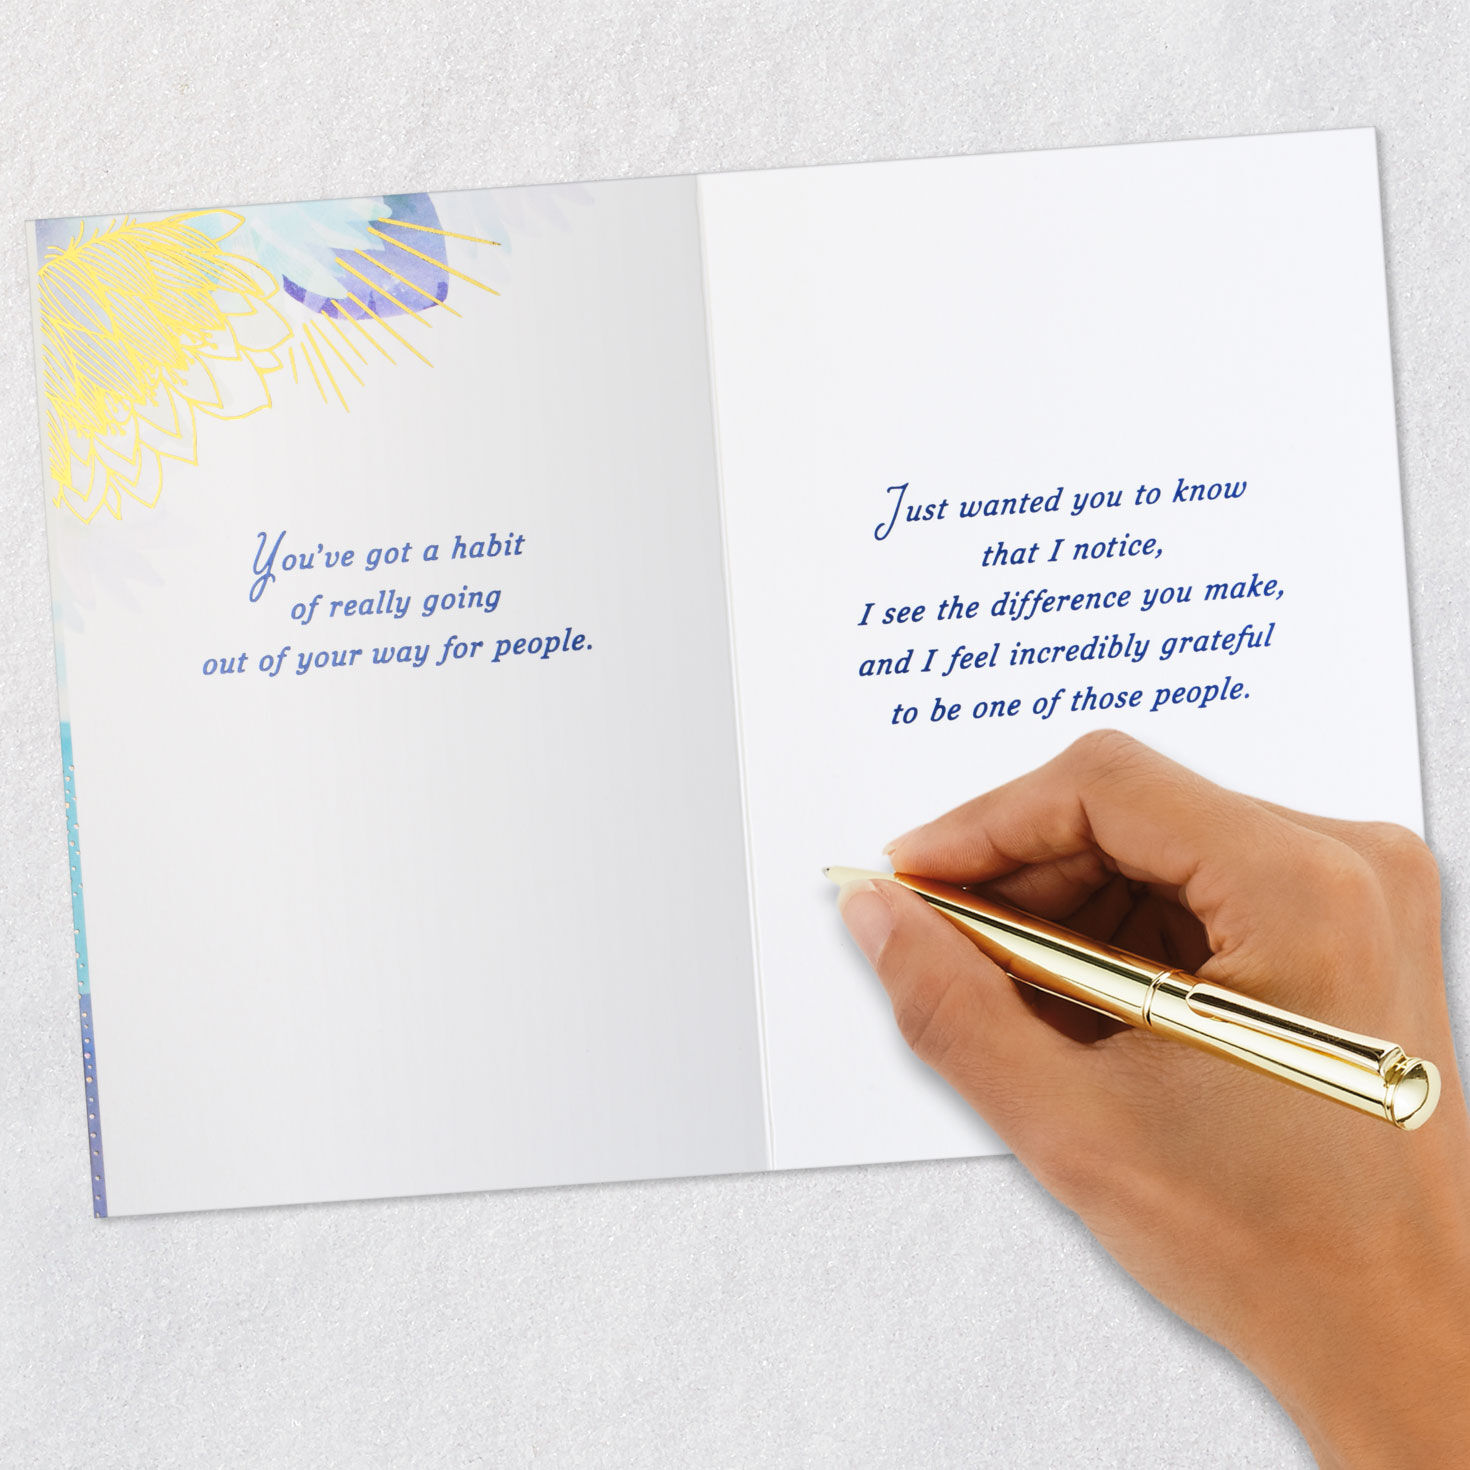 You've got a habit
of really going
out of your way for people.
Just wanted you to know
that I notice,
I see the difference you make,
and I feel incredibly grateful
to be one of those people.